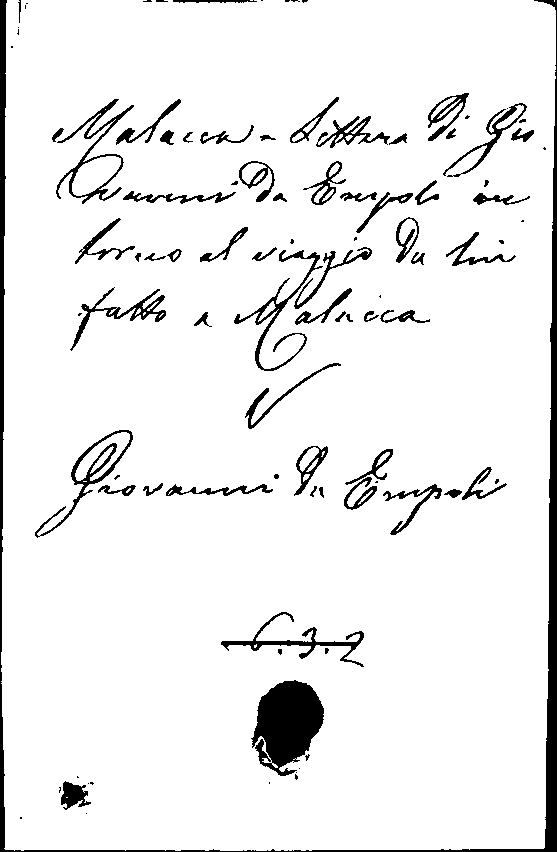 Malacca - Lettera di Gio
vanni Da Empoli in
torno al viaggio Da lui
fatto a Malacca
V
Giovanni Da Empoli
6.3.2